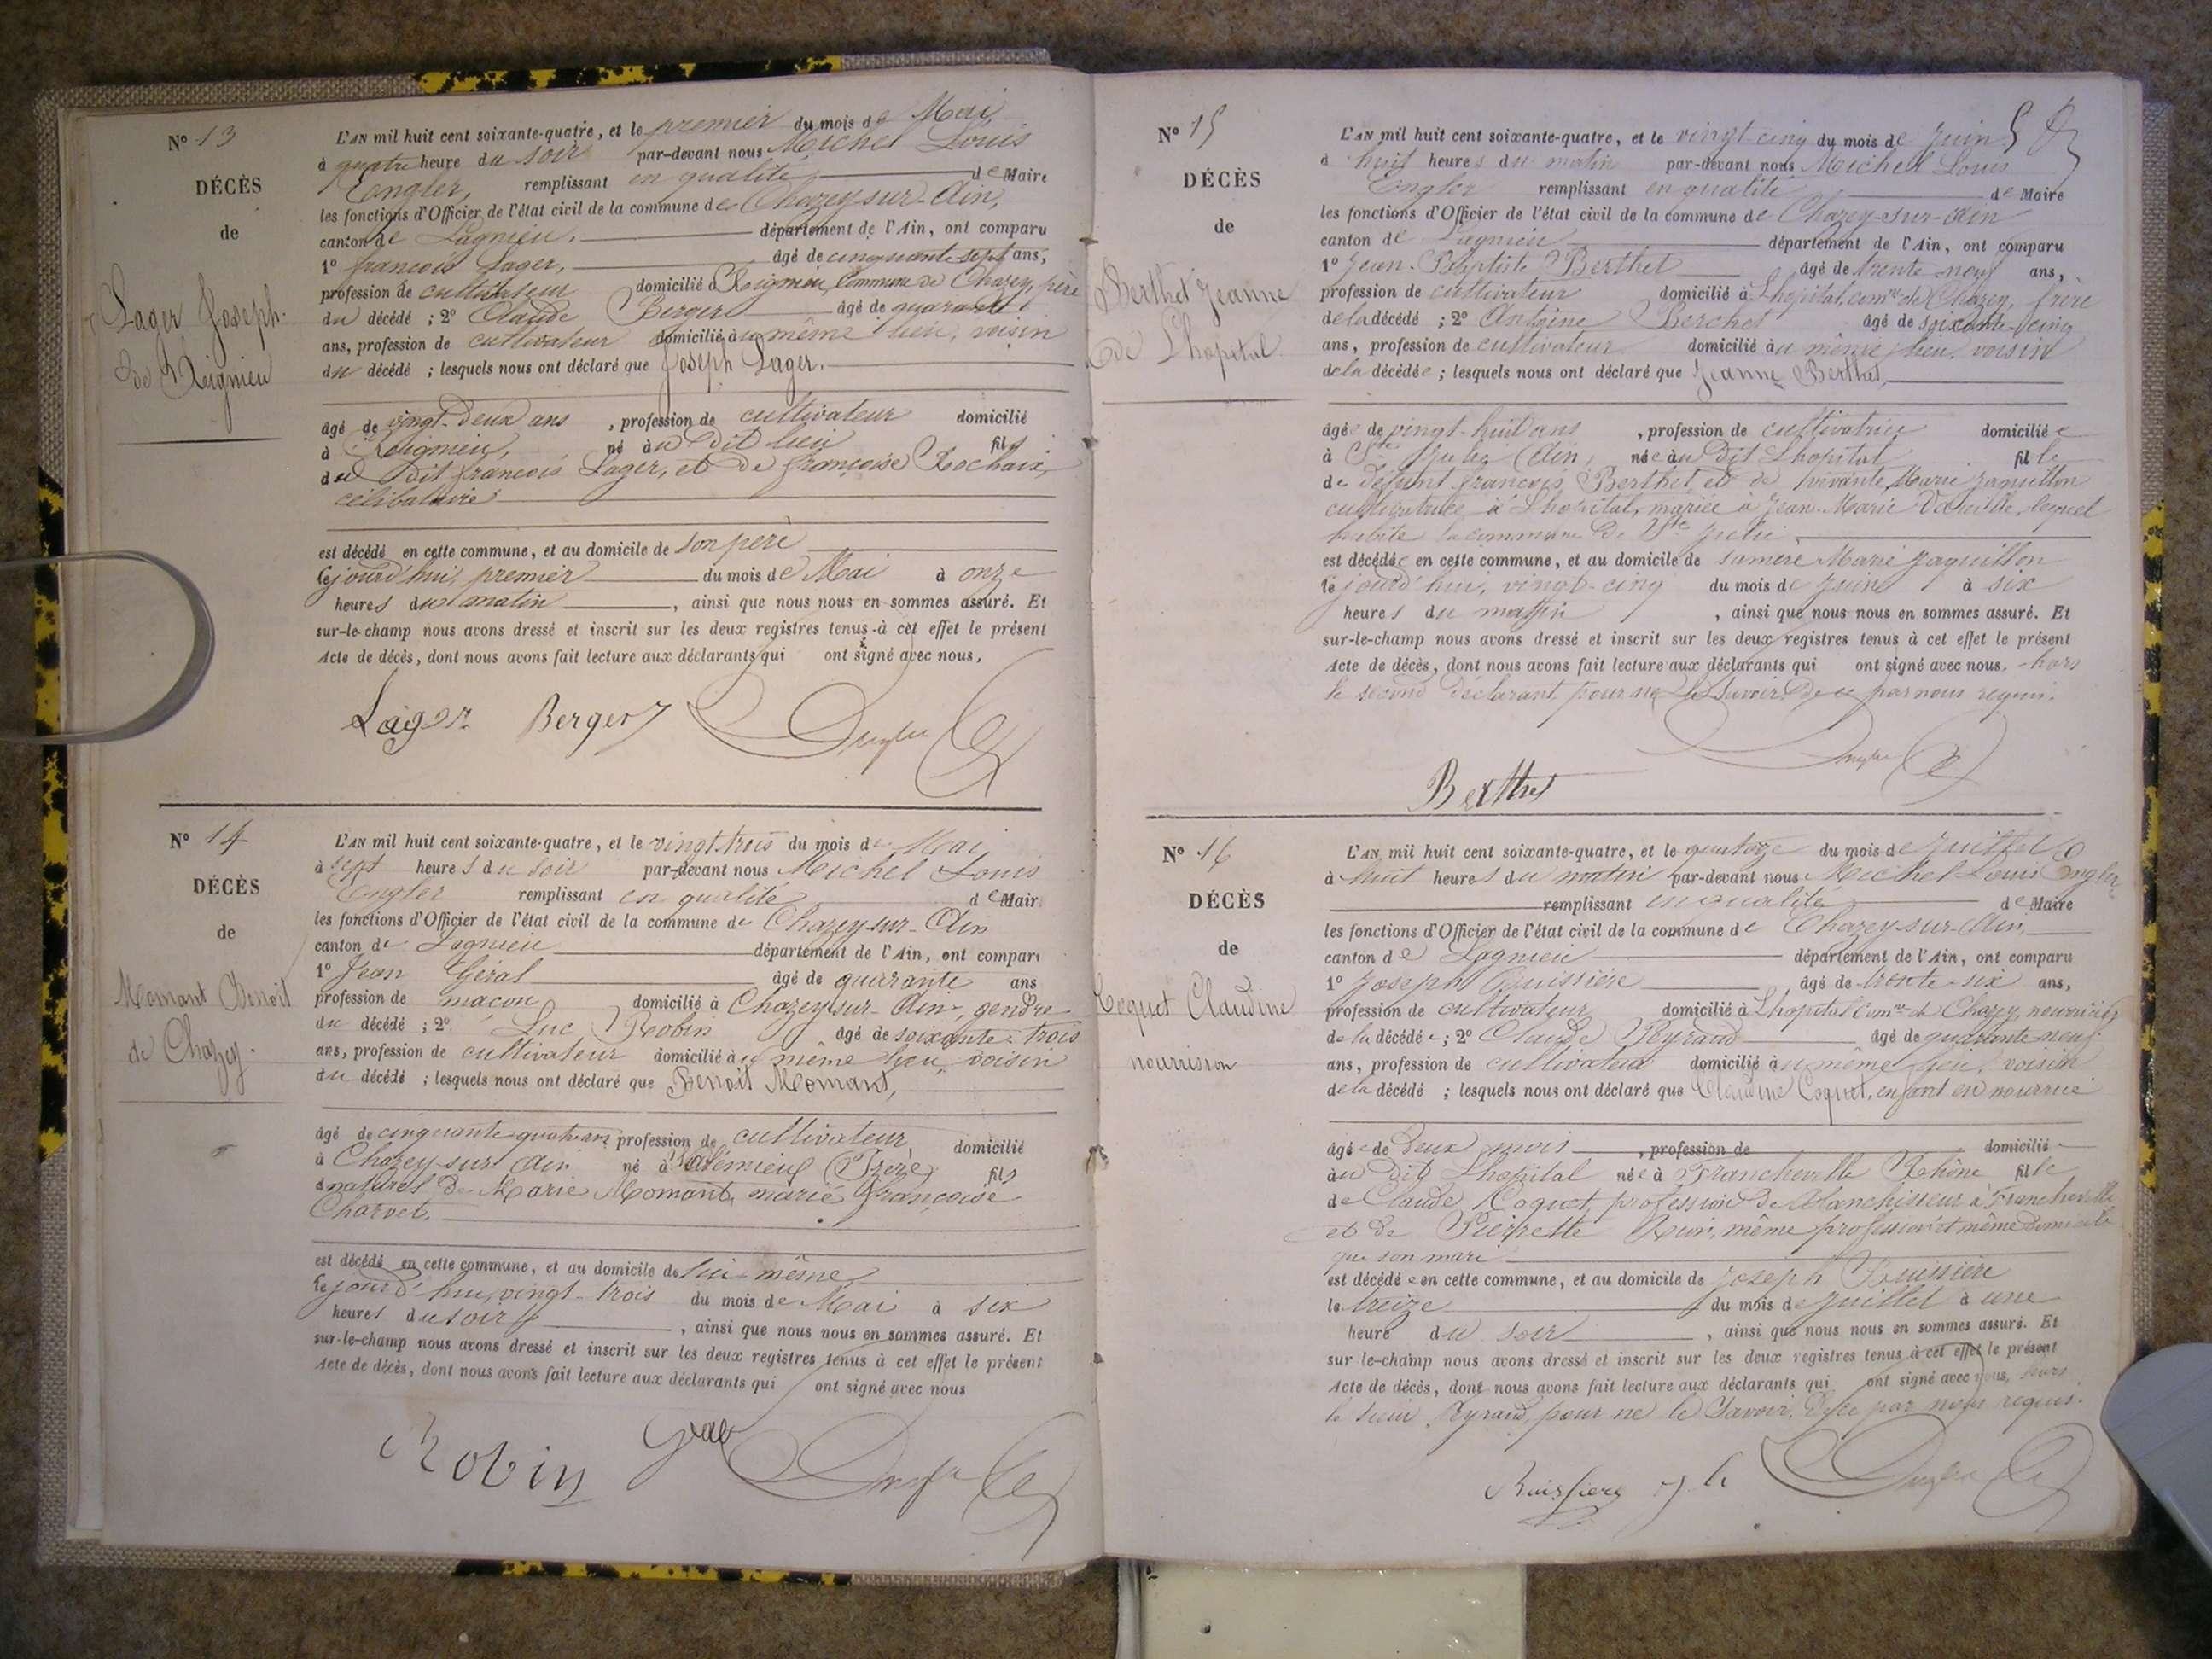 N° 13
DÉCÈS
de
Lager Joseph.
de Rignieu
L'AN mil huit cent soixante-quatre, et le premier du mois de Mai
à quatre heure du soir par-devant nous Michel Louis
Engler, remplissant en qualité de Maire
les fonctions d'Officier de l'état civil de la commune de Chazey-sur-Ain,
canton de Lagnieu, département de l'Ain, ont comparu
1° françois Lager, âgé de cinquante sept ans,
profession de cultivateur domicilié à Rignieu, Commune de Chazey, père
du décédé ; 2° Claude Berger âgé de quarante
ans, profession de cultivateur domicilié au même lieu, voisin
du décédé ; lesquels nous ont déclaré que Joseph Lager.
âgé de vingt-deux ans , profession de cultivateur domicilié
à né au dit lieu fils
du dit françois Lager, et de françoise Rochaix,
célibataire
est décédé en cette commune, et au domicile de son père
le jourd'hui, premier du mois de Mai à onze
heures du matin , ainsi que nous nous en sommes assuré. Et
sur-le-champ nous avons dressé et inscrit sur les deux registres tenus à cet effet le présent
Acte de décès, dont nous avons fait lecture aux déclarants qui ont signé avec nous,
Lager Berger Engler
N° 14
DÉCÈS
de
Momant Benoit
de Chazey.
L'AN mil huit cent soixante-quatre, et le vingt-trois du mois de Mai
à sept heures du soir par-devant nous Michel Louis
Engler remplissant en qualité de Maire
les fonctions d'Officier de l'état civil de la commune de Chazey-sur-Ain
canton de Lagnieu département de l'Ain, ont comparu
1° Jean Géral âgé de quarante ans
profession de maçon domicilié à Chazey-sur-Ain, gendre
du décédé ; 2° Luc Robin âgé de soixante-trois
ans, profession de cultivateur domicilié au même lieu, voisin
du décédé ; lesquels nous ont déclaré que Benoit Momant,
âgé de cinquante-quatre ans profession de cultivateur domicilié
à Chazey-sur-Ain né à fils
naturel de Marie Momant, marié françoise
Charvet.
est décédé en cette commune, et au domicile de lui-même
le jourd'hui, vingt-trois du mois de Mai à six
heures du soir , ainsi que nous nous en sommes assuré. Et
sur-le-champ nous avons dressé et inscrit sur les deux registres tenus à cet effet le présent
Acte de décès, dont nous avons fait lecture aux déclarants qui ont signé avec nous
Robin Engler
N° 15
DÉCÈS
de
Berthet Jeanne
de L'hopital
L'AN mil huit cent soixante-quatre, et le vingt-cinq du mois de Juin
à huit heures du matin par-devant nous Michel Louis
Engler remplissant en qualité de Maire
les fonctions d'Officier de l'état civil de la commune de Chazey-sur-Ain
canton de Lagnieu département de l'Ain, ont comparu
1° Jean-Baptiste Berthet âgé de trente-neuf ans,
profession de cultivateur domicilié à L'hopital, comne de Chazey, frère
de la décédé ; 2° Antoine Berchet âgé de soixante-cinq
ans, profession de cultivateur domicilié au même lieu, voisin
de la décédée ; lesquels nous ont déclaré que Jeanne Berthet,
âgée de vingt-huit ans , profession de cultivatrice domiciliée
à Ste Julie (Ain) née au dit L'hopital fille
de défunt françois Berthet et de vivante Marie Jaquillon
cultivatrice à L'hopital, mariée à Jean-Marie lequel
habite la commune de Ste Julie
est décédée en cette commune, et au domicile de sa mère Marie Jaquillon
le jourd'hui, vingt-cinq du mois de Juin à six
heures du matin , ainsi que nous nous en sommes assuré. Et
sur-le-champ nous avons dressé et inscrit sur les deux registres tenus à cet effet le présent
Acte de décès, dont nous avons fait lecture aux déclarants qui ont signé avec nous, hors
le second déclarant pour ne le savoir de ce par nous requis.
Engler
Berthet
N° 16
DÉCÈS
de
Coquet Claudine
nourrisson
L'AN mil huit cent soixante-quatre, et le quatorze du mois de Juillet
à huit heures du matin par-devant nous Michel Louis Engler
remplissant en qualité de Maire
les fonctions d'Officier de l'état civil de la commune de Chazey-sur-Ain,
canton de Lagnieu département de l'Ain, ont comparu
1° Joseph Buissière âgé de trente-six ans,
profession de cultivateur domicilié à L'hopital comne de Chazey, nourricier
de la décédée ; 2° Claude Peyraud âgé de quarante-neuf
ans, profession de cultivateur domicilié au même lieu, voisin
de la décédé ; lesquels nous ont déclaré que Claudine Coquet, enfant en nourrice
âgée de deux mois , profession de domiciliée
au dit L'hopital née à Francheville Rhône fille
de Claude Coquet, profession de Blanchisseur à Francheville
et de Pierrette même profession et même domicile
que son mari
est décédée en cette commune, et au domicile de Joseph Buissière
le treize du mois de Juillet à une
heure du soir , ainsi que nous nous en sommes assuré. Et
sur le-champ nous avons dressé et inscrit sur les deux registres tenus à cet effet le présent
Acte de décès, dont nous avons fait lecture aux déclarants qui ont signé avec nous, hors
le sieur Peyraud, pour ne le savoir, de ce par nous requis.
Buissiere Engler